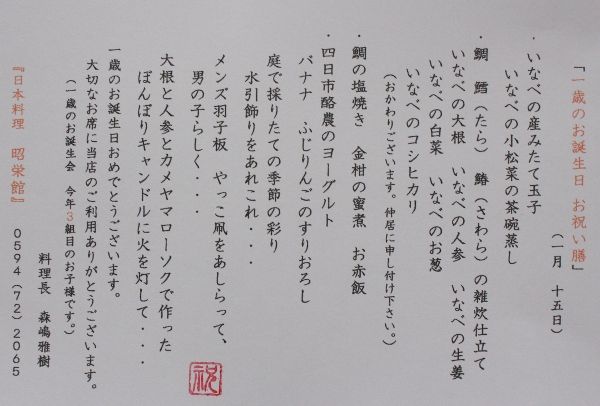 「一歳のお誕生日 お祝い膳」
(一月 十五日)
・いなべの産みたて玉子
いなべの小松菜の茶碗蒸し
・鯛 鱈(たら) 鰆(さわら)の雑炊仕立て
いなべの大根 いなべの人参 いなべの生姜
いなべの白菜 いなべのお葱
いなべのコシヒカリ
(おかわりございます。仲居に申し付け下さい。)
・鯛の塩焼き 金柑の蜜煮 お赤飯
・四日市酪農のヨーグルト
バナナ ふじりんごのすりおろし
庭で採りたての季節の彩り
水引飾りをあれこれ・・・
メンズ羽子板 やっこ凧をあしらって、
男の子らしく・・・
大根と人参とカメヤマローソクで作った
ぼんぼりキャンドルに火を灯して・・・
一歳のお誕生日おめでとうございます。
大切なお席に当店のご利用ありがとうございます。
(一歳のお誕生会 今年3組目のお子様です。)
料理長 森嶋雅樹
『日本料理 昭栄館』 0594(72)2065
祝